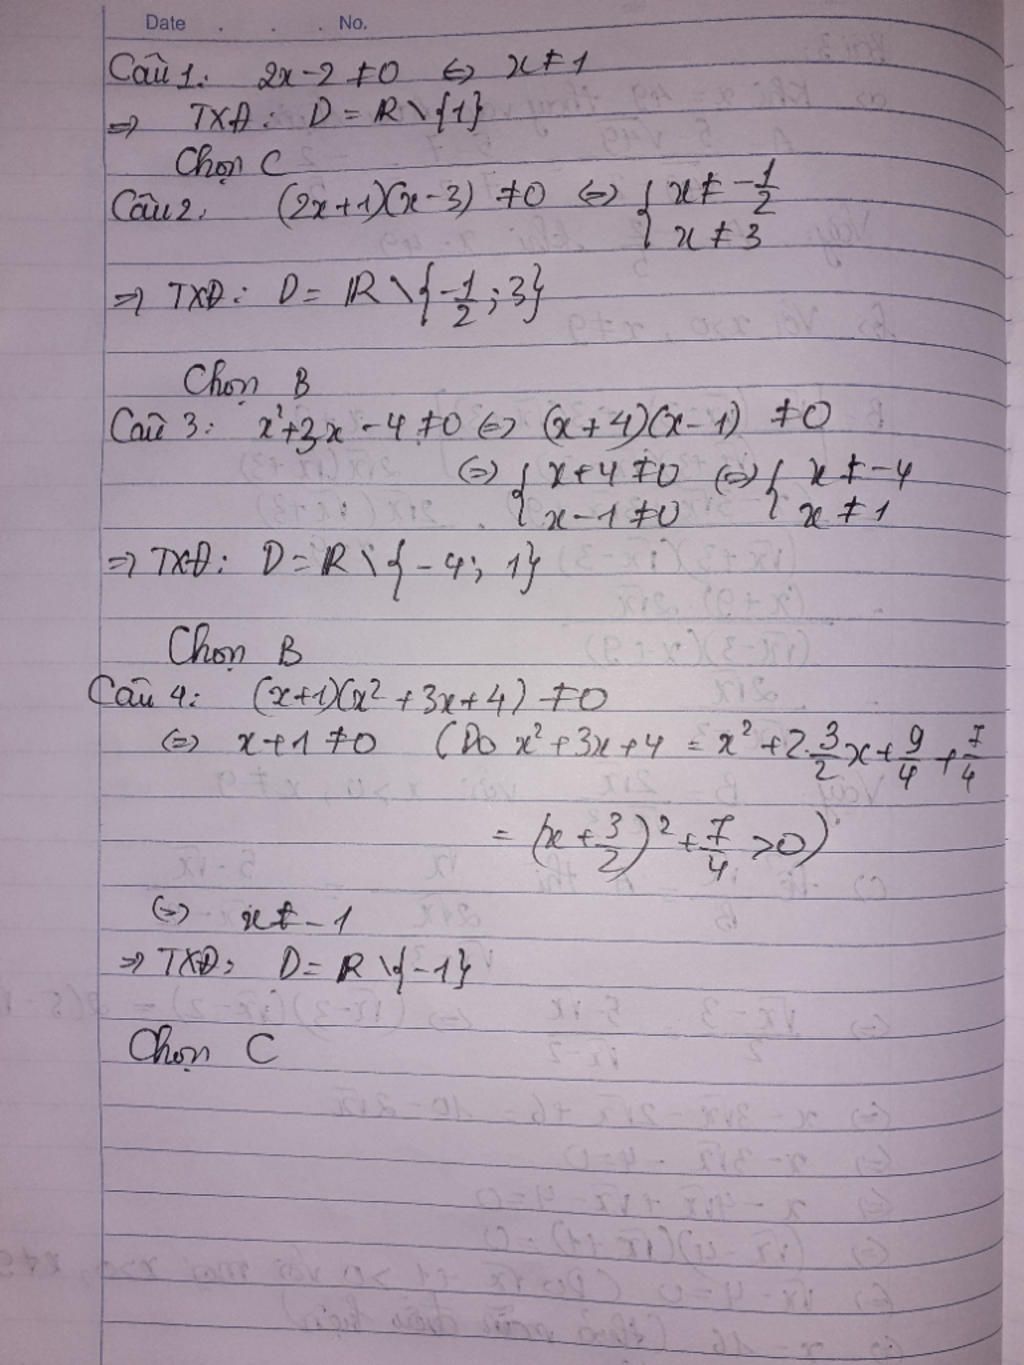 Date . . . No.
Câu 1: 2x-2 ≠0 ⇔ x≠1
⇒ TXĐ: D = R \ {1}
Chọn C
Câu 2: (2x+1)(x-3) ≠0 ⇔ { x≠ -1/2
x≠3
⇒ TXĐ: D = R \ {-1/2 ; 3}
Chọn B
Câu 3: x²+3x-4≠0 ⇔ (x+4)(x-1) ≠0
⇔ { x+4≠0 ⇔ { x≠-4
x-1≠0 x≠1
⇒ TXĐ: D = R \ {-4; 1}
Chọn B
Câu 4: (x+1)(x²+3x+4) ≠0
⇔ x+1≠0 (Do x²+3x+4 = x²+2.3/2x+9/4+7/4
= (x+3/2)²+7/4 >0)
⇔ x≠-1
⇒ TXĐ: D = R \ {-1}
Chọn C